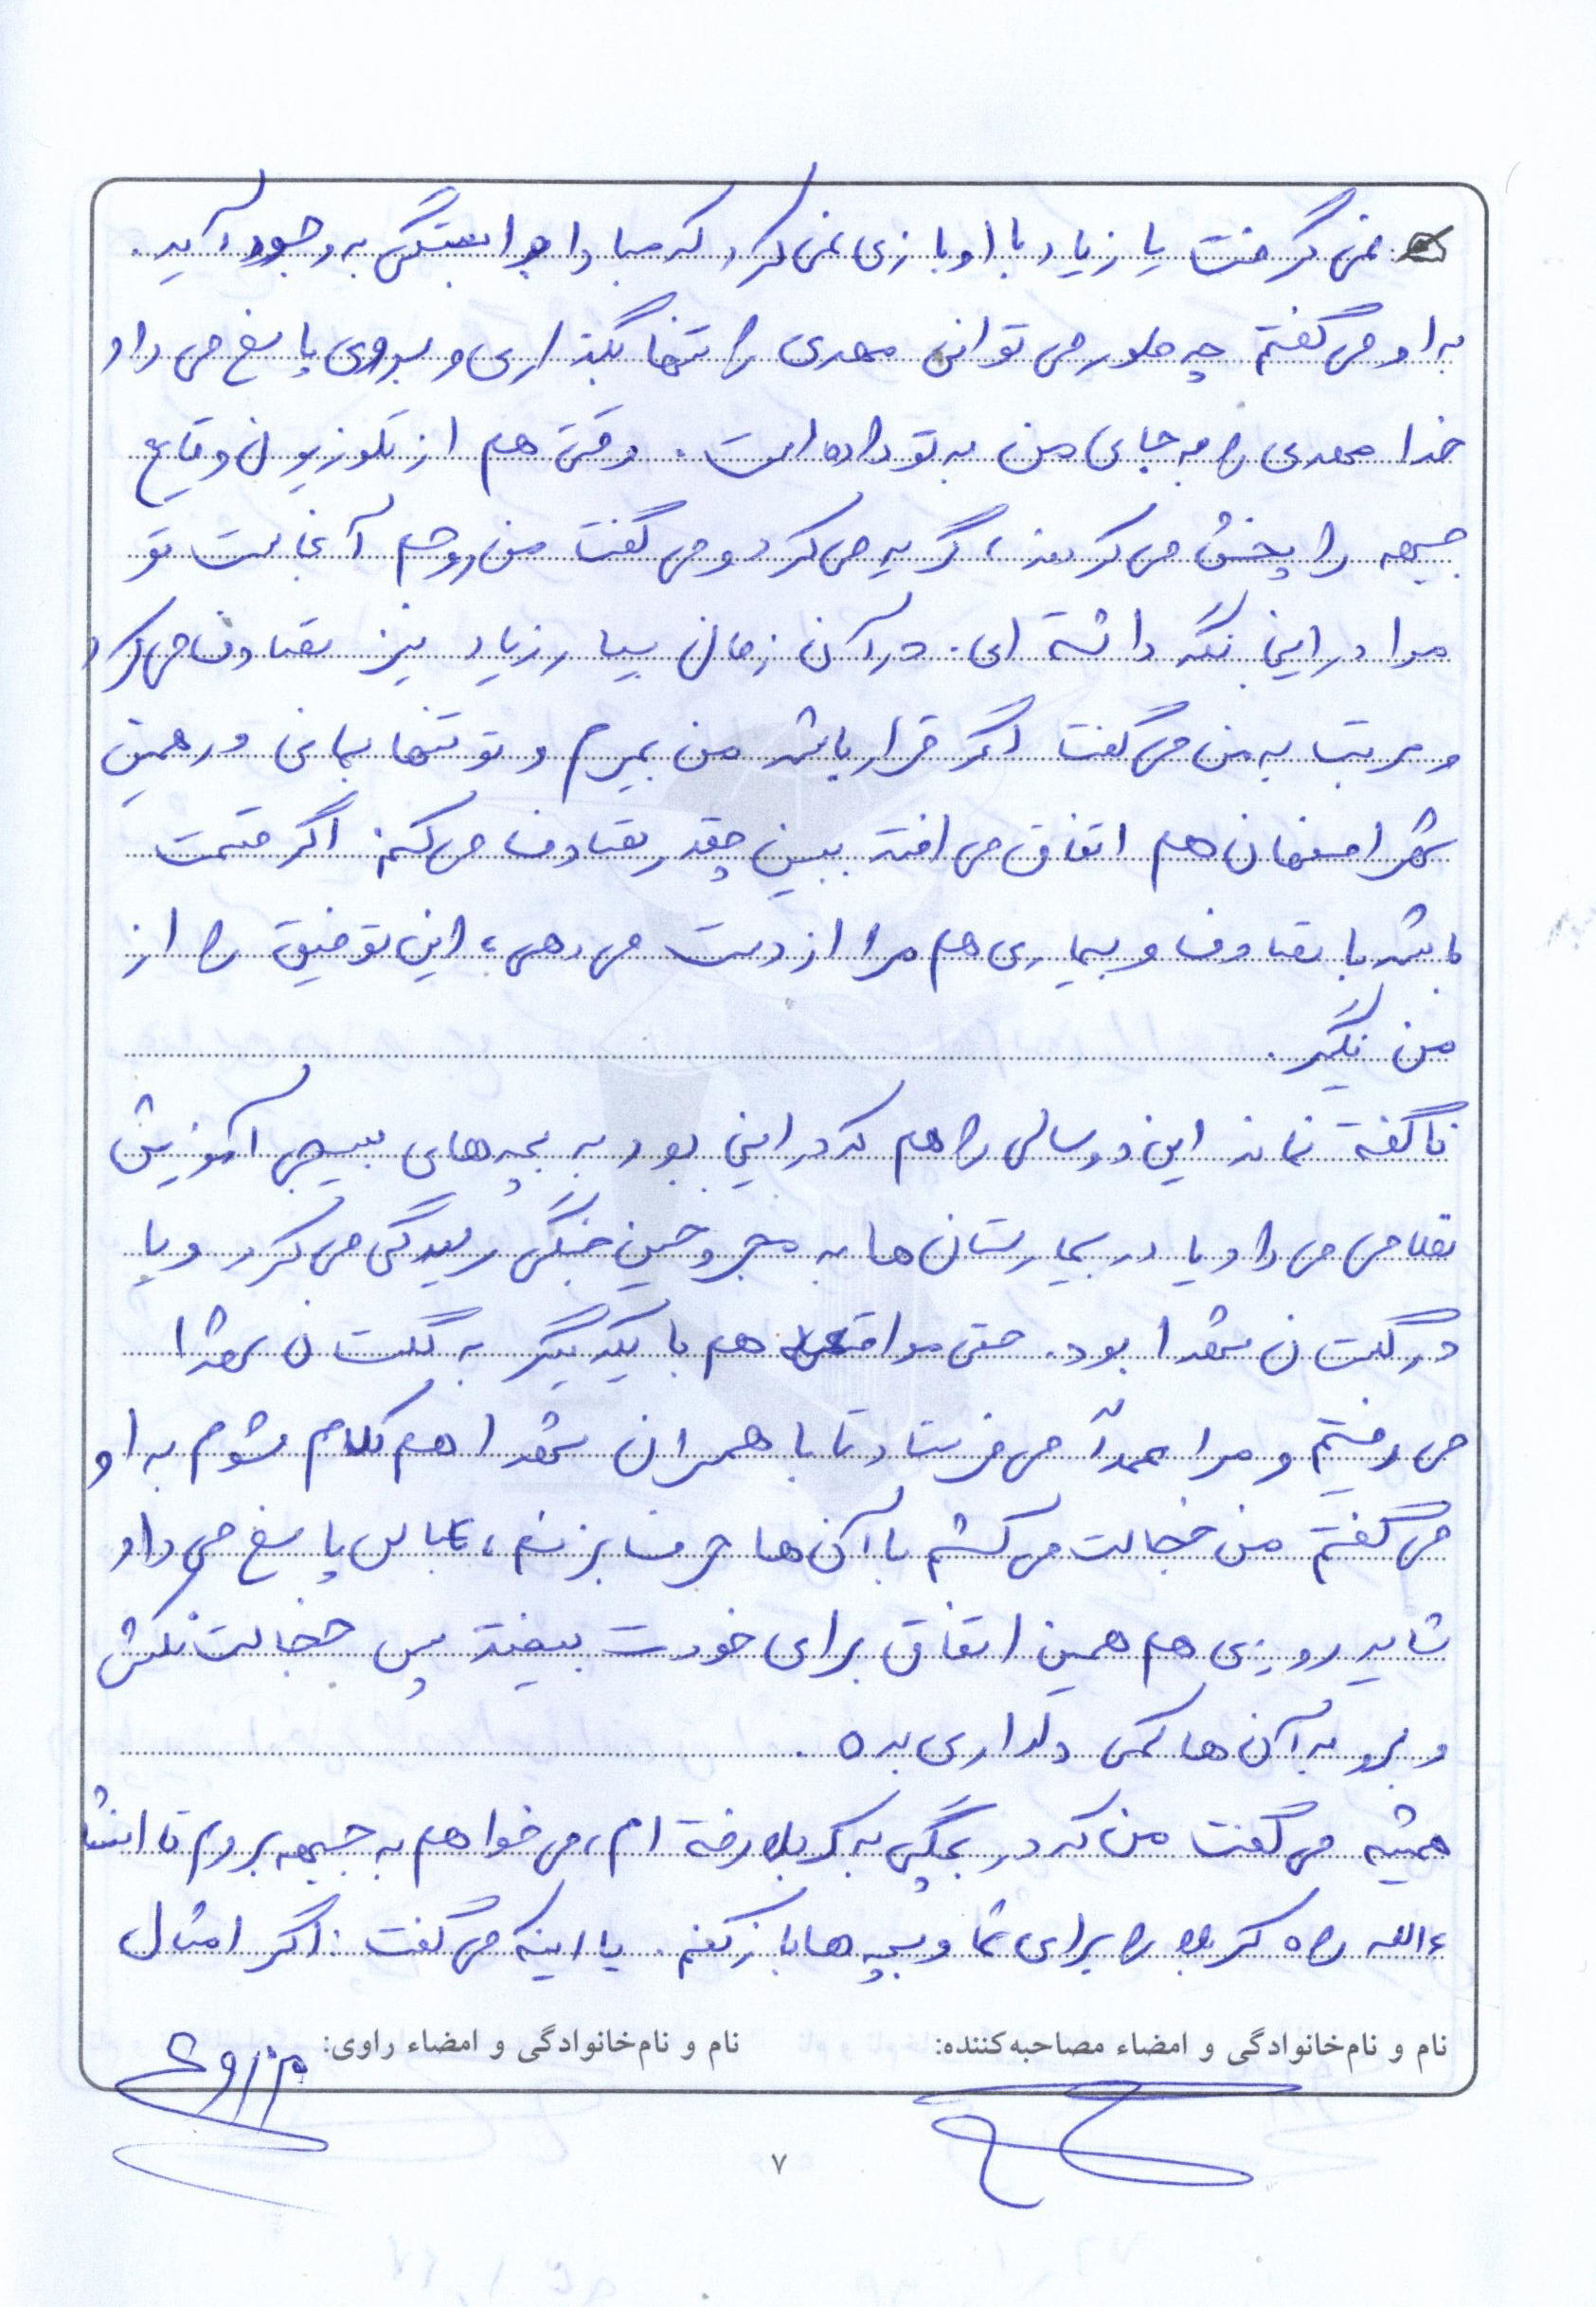 نمی گرفت یا زیاد با او بازی نمی کرد که مبادا وابستگی به وجود آید.
به او می گفتم چه طور می توانی مهدی را تنها بگذاری و بروی پاسخ می داد
خدا مهدی را به جای من به تو داده است. وقتی هم از تلوزیون وقایع
جبهه را پخش می کردند، گریه می کرد و می گفت من روحم آنجاست تو
مرا در اینجا نگه داشته ای. در آن زمان بسیار زیاد نیز تصادف می کرد
و مرتب به من می گفت اگر قرار باشد من بمیرم و تو تنها بمانی در همین
شهر اصفهان هم اتفاق می افتد ببین چقدر تصادف می کنم. اگر قسمت
باشد با تصادف و بیماری هم مرا از دست می دهی، این توفیق را از
من نگیر.
ناگفته نماند این دو سالی را هم که در اینجا بود به بچه های بسیجی آموزش
نظامی می داد یا در بیمارستان ها به مجروحین جنگی رسیدگی می کرد و یا
در گلستان شهدا بود. حتی مواقعی هم با یکدیگر به گلستان شهدا
می رفتیم و مرا عمداً می فرستاد تا با همسران شهدا هم کلام شوم به او
می گفتم من خجالت می کشم با آن ها حرف بزنم، عباس پاسخ می داد
شاید روزی هم همین اتفاق برای خودت بیفتد پس خجالت نکش
و برو به آن ها کمی دلداری بده.
همیشه می گفت من که در بچگی به کربلا رفته ام، می خواهم به جبهه بروم تا انشا
ءالله راه کربلا را برای شما و بچه ها باز کنم. یا اینکه می گفت: اگر امثال
نام و نام‌خانوادگی و امضاء مصاحبه‌کننده: نام و نام‌خانوادگی و امضاء راوی:
۷